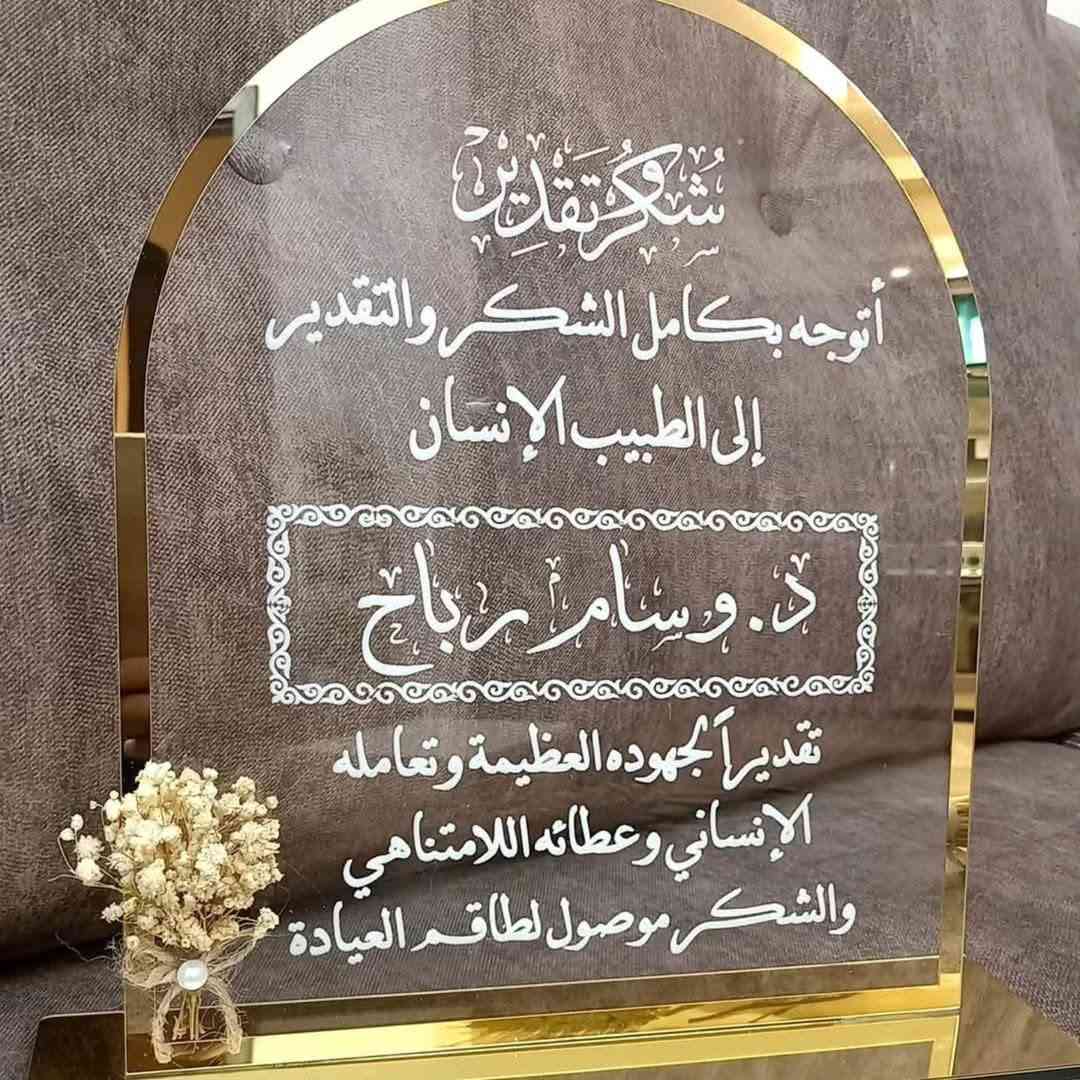 شكر وتقدير
أتوجه بكامل الشكر والتقدير
إلى الطبيب الإنسان
د. وسام رباح
تقديراً لجهوده العظيمة وتعامله
الإنساني وعطائه اللامتناهي
والشكر موصول لطاقم العيادة